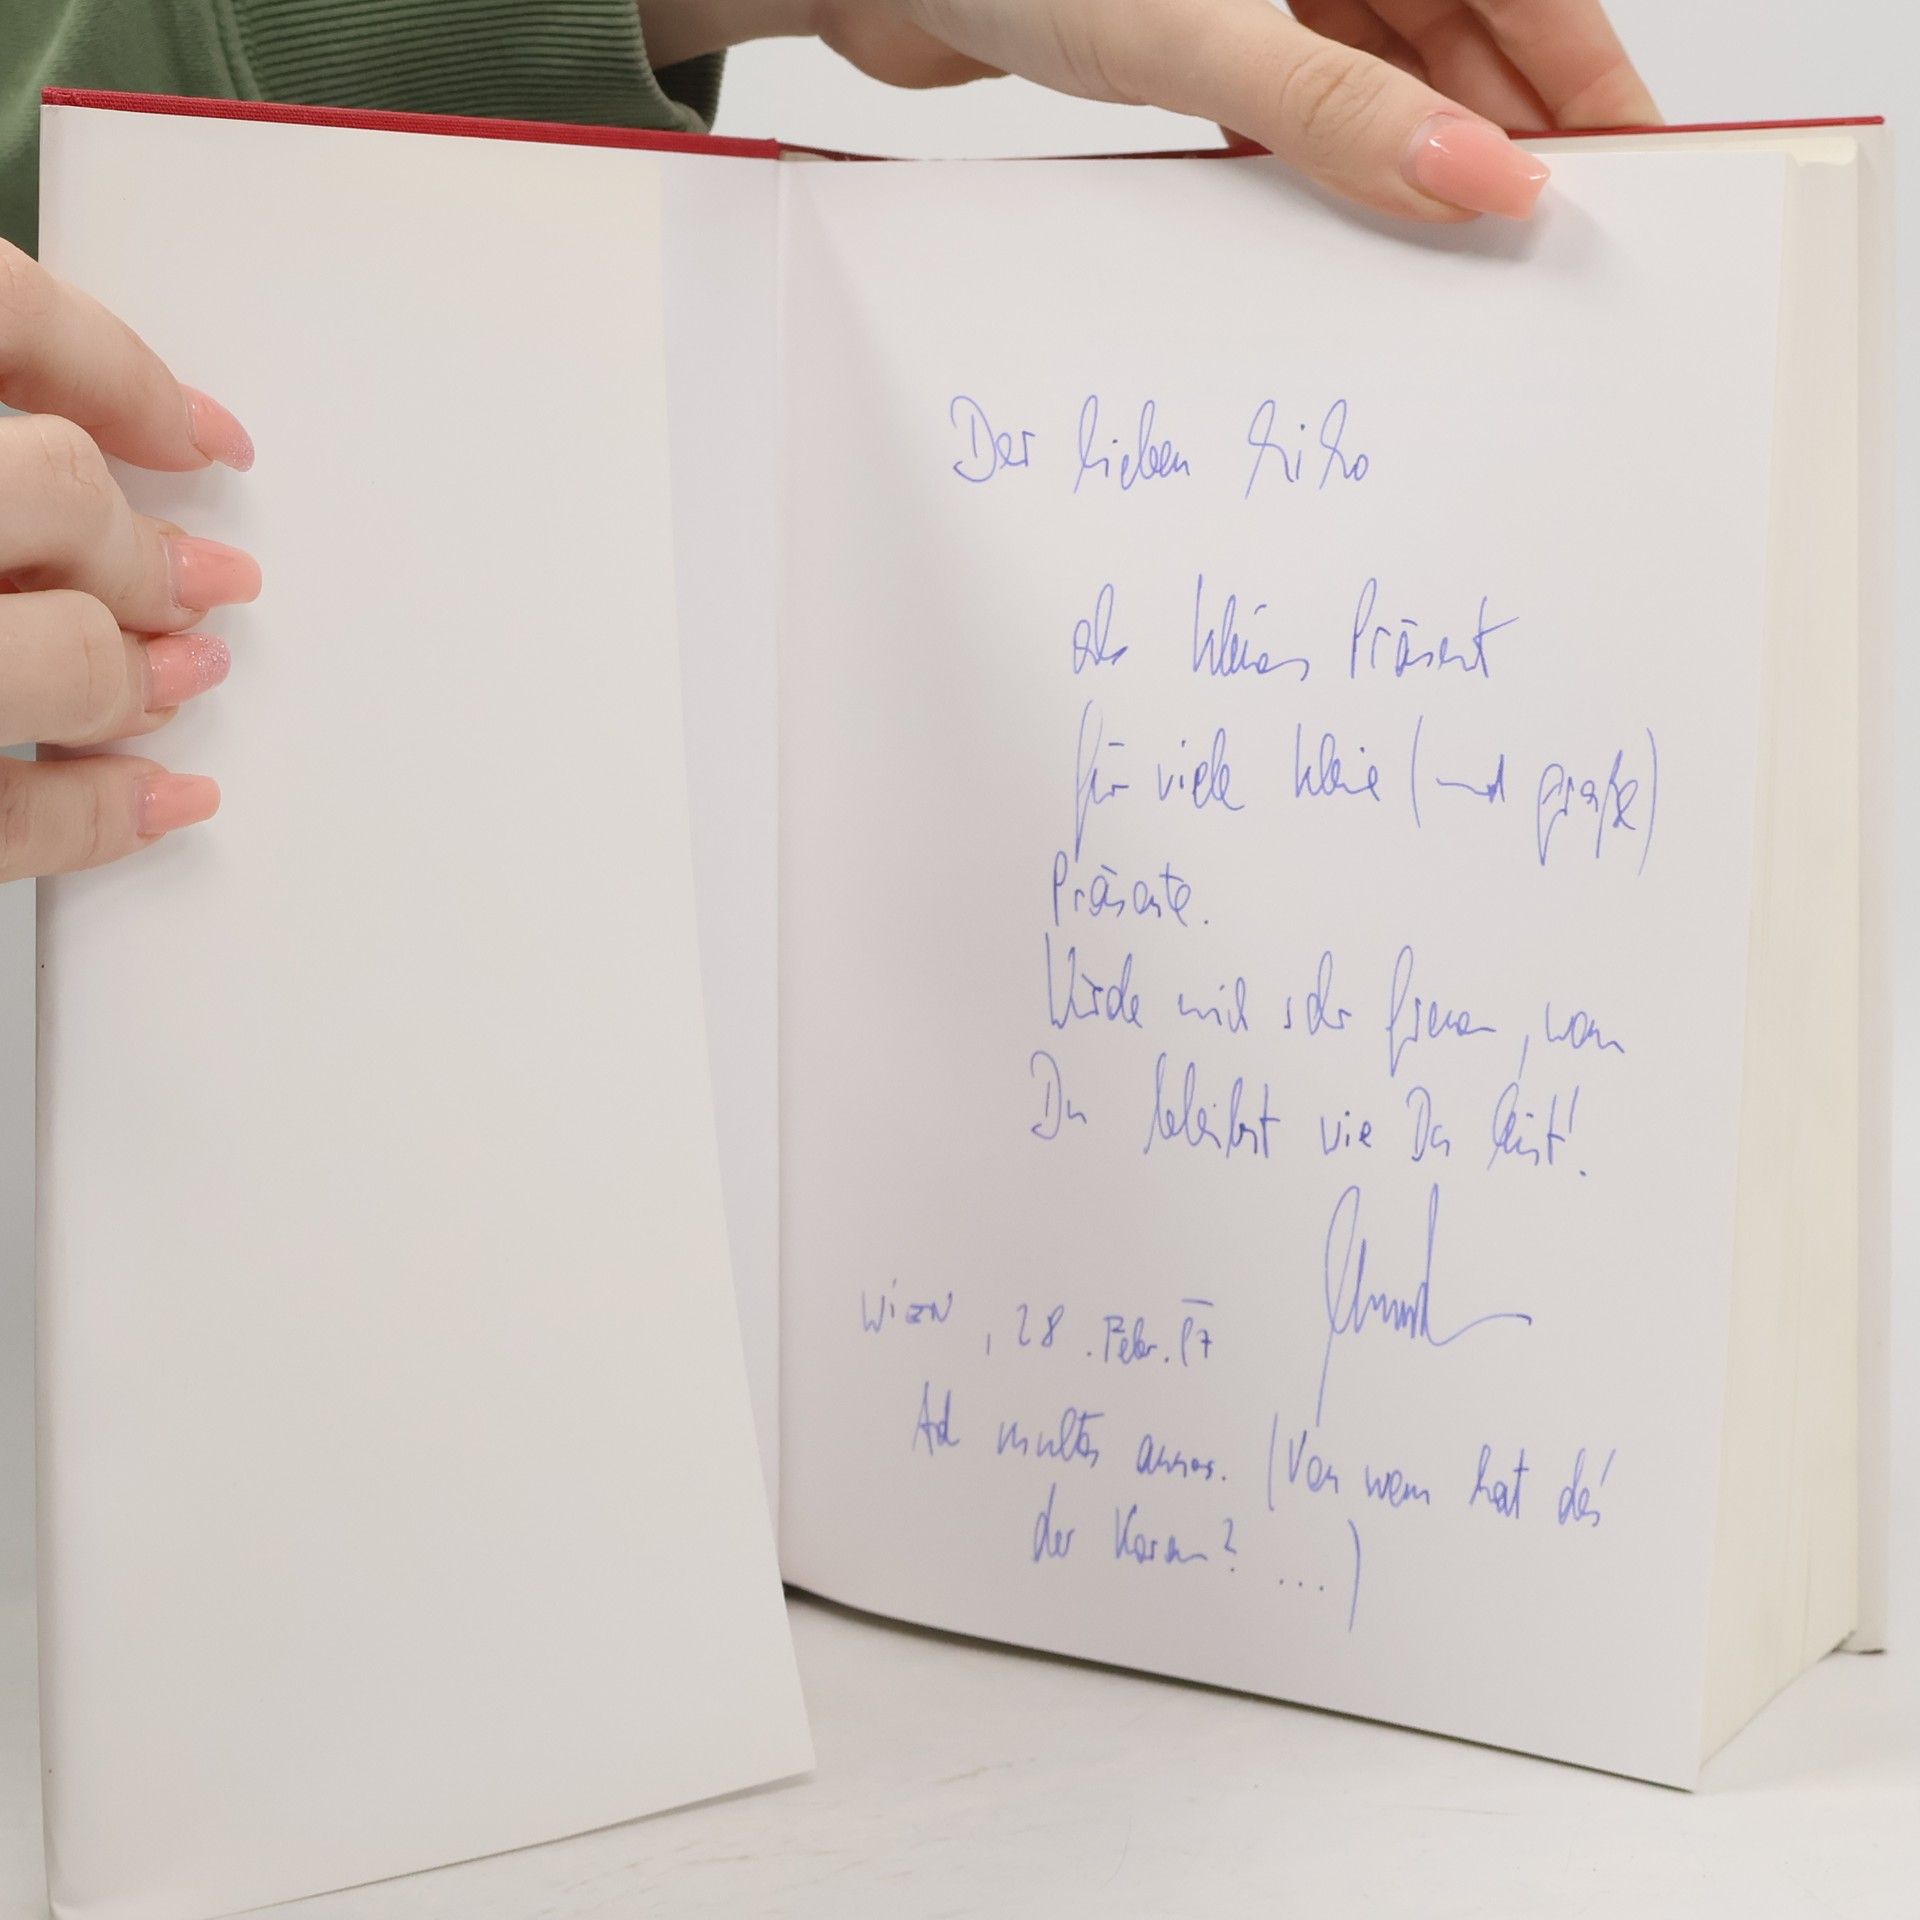 Der lieben Kiko
als kleines Präsent
für viele kleine (und große)
Präsente.
Würde mich sehr freuen, wenn
Du bleibst wie Du bist!
WIEN, 28. Febr. 97
Ad multos annos. (Von wem hat des
der Koran? ...)